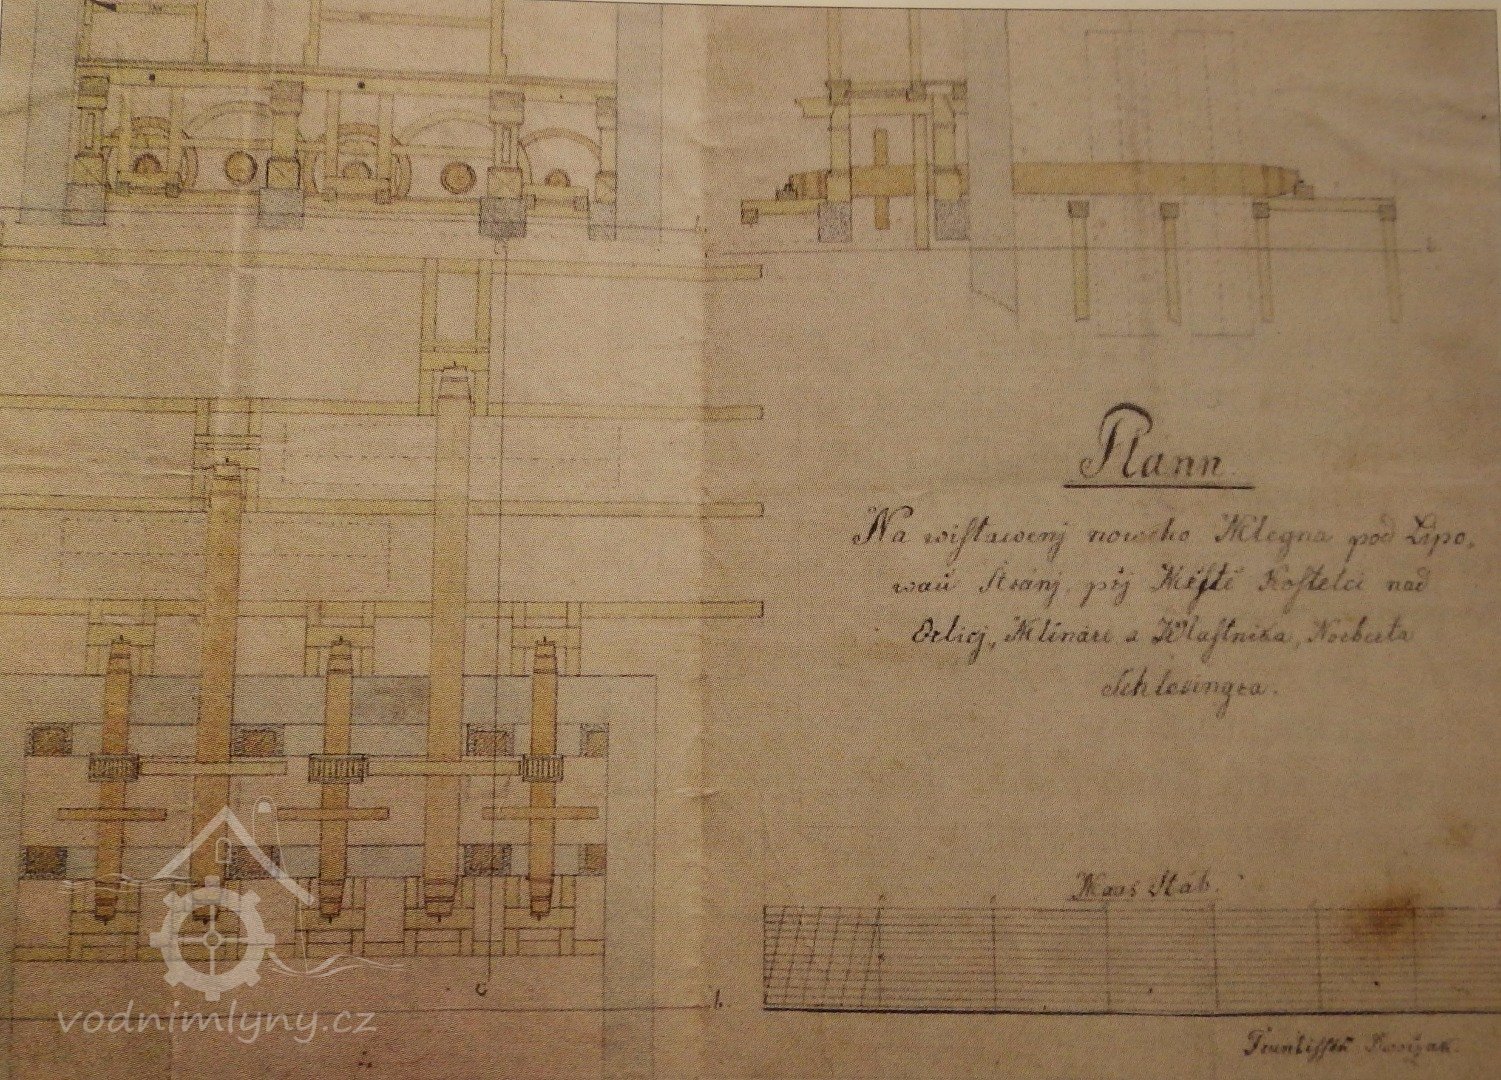 Plann
Na wistawenj noweho Mlegna pod Lipo,
wau Stránj, přj Městě Kostelci nad
Orlicj, Mlináře a Wlastnika, Norberta
Schlesingra.
Maas Stab.
Frantissek
vodnimlyny.cz